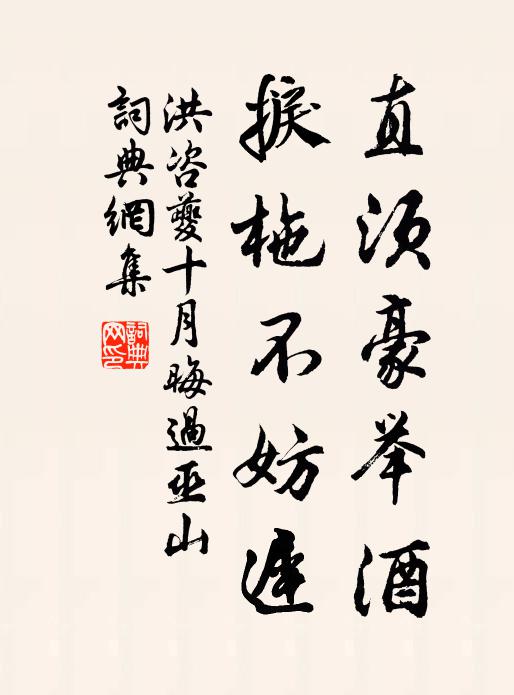 直须豪举酒
捩柂不妨遲
洪咨夔十月晦過巫山
詞典網集
詞典網印